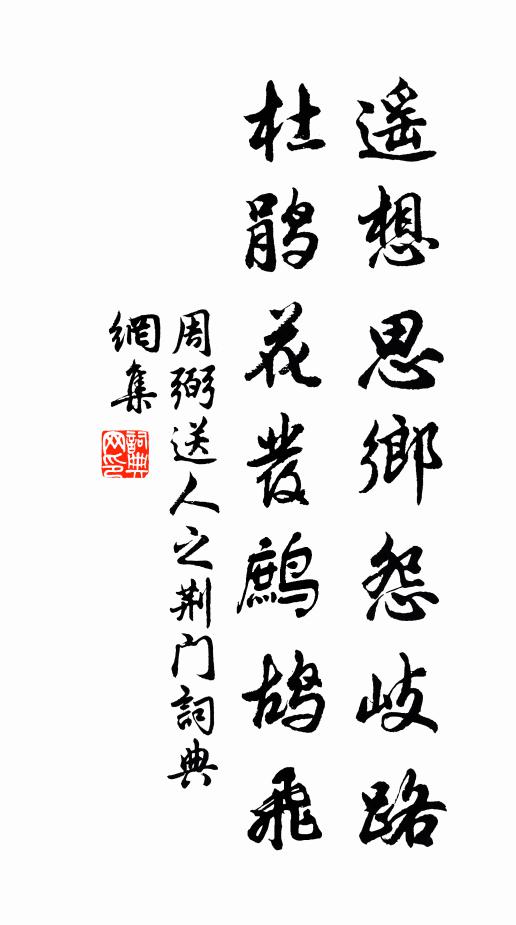 遥想思鄉怨岐路
杜鵑花發鷓鴣飛
周弼送人之荆门詞典
網集
詞典
网印